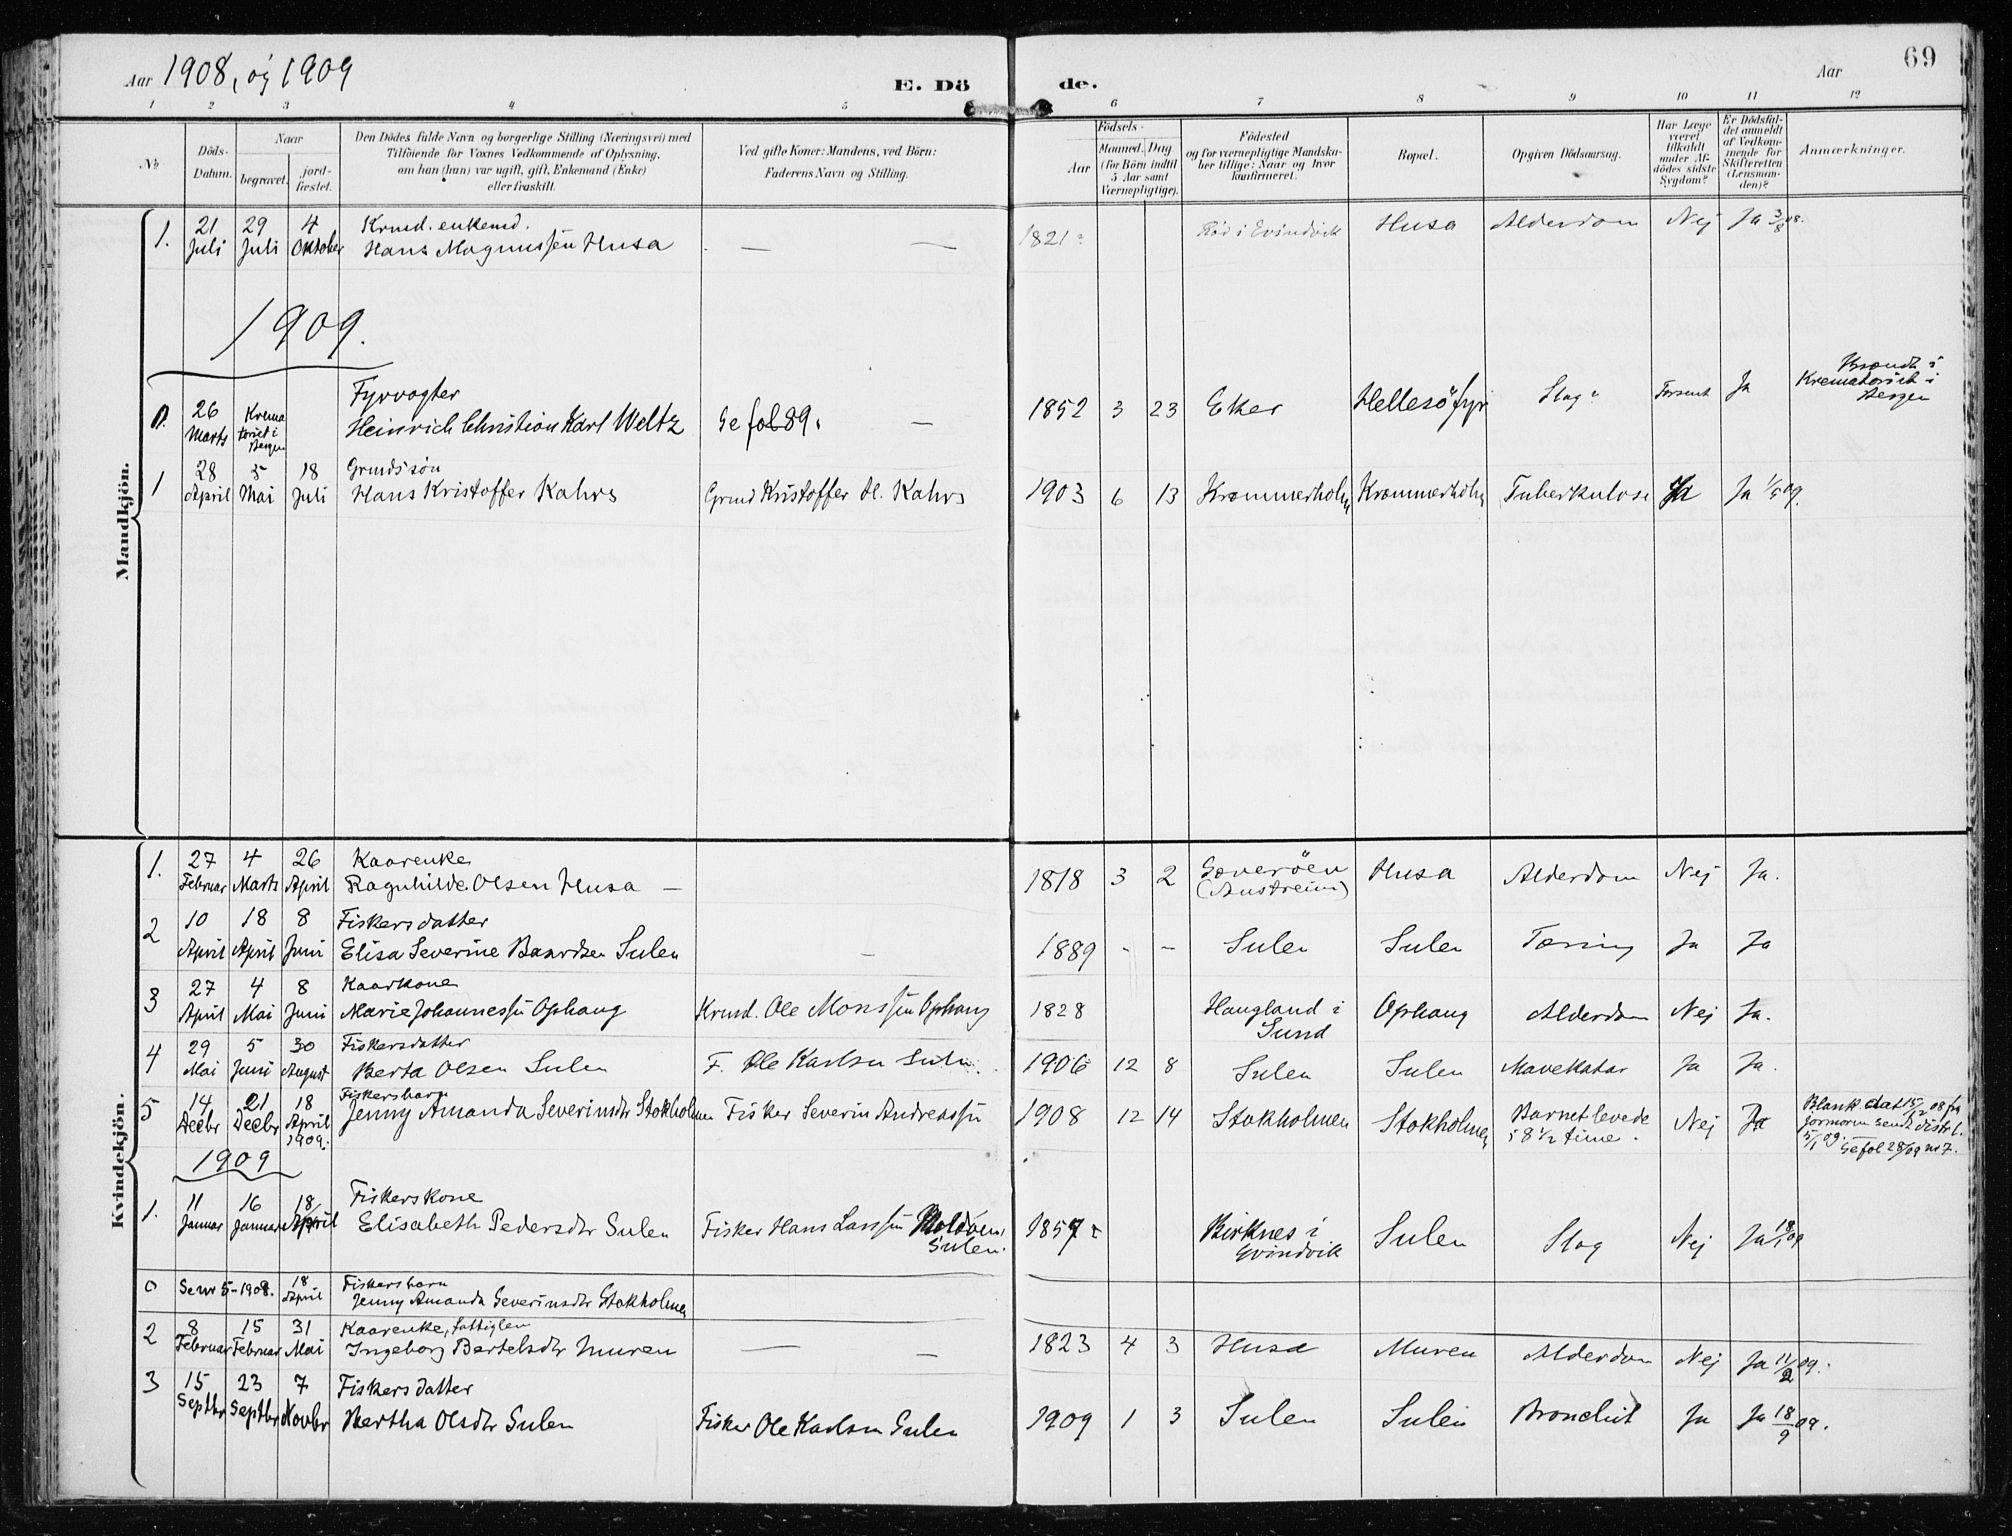 Aar 1908, og 1909
E. Dö
de.
Aar
69
1 2 3 4 5 6 7 8 9 10 11 12
№
Döds-
Datum.
Naar
begravet.
jord-
fæstet.
Den Dödes fulde Navn og borgerlige Stilling (Næringsvei) med
Tilföiende for Voxnes Vedkommende af Oplysning,
om han (hun) var ugift, gift, Enkemand (Enke)
eller fraskilt.
Ved gifte Koner: Mandens, ved Börn:
Faderens Navn og Stilling.
Födsels-
Aar
Maaned. Dag.
(for Börn indtil
5 Aar samt
Værnepligtige).
Födested
og for værnepligtige Mandska-
ber tillige: Naar og hvor
konfirmeret.
Bopæl.
Opgiven Dödsaarsag.
Har Læge
været
tilkaldt
under Af-
dödes sidste
Sygdom?
Er Dödsfal-
det anmeldt
af Vedkom-
mende for
Skifteretten
(Lensman-
den)?
Anmærkninger.
Mandkjön.
1. 21 Juli 29 Juli 4 Oktober Krmd. enkemd.
Hans Magnussen Husa — — 1821? i Evindvik Husa Alderdom Nej Ja 3/8 08.
1909.
0. 26 Marts Krematoriet i Bergen Fyrvogter
Heinrich Christian Karl Weltz Se fol 89. — 1852 3 23 Eker Hellesö fyr Slag? Ja Brændt i
Krematoriet i
Bergen
1 28 April 5 Mai 18 Juli Grmds sön
Hans Kristoffer Kahrs Grmd Kristoffer H. Kahrs 1903 6 13 Krommerholm Krommerholm Tuberkulose Ja Ja 1/5 09.
Kvindekjön.
1. 27 Februar 4 Marts 26 April Kaarenke
Ragnhilde Olsen Husa — 1818 3 2 (Austreim) Husa Alderdom Nej Ja.
2 10 April 18 April 8 Juni Fiskersdatter
Elisa Severine Baardsen Sulen — 1889 - - Sulen Sulen Tæring Ja Ja
3 27 April 4 Mai 8 Juni Kaarkone
Marie Johannessen Ophaug Krmd. Ole Monssen Ophaug 1828 Haugland i
Sund Ophaug Alderdom Nej Ja.
4 29 Mai 5 Juni 30 August Fiskersdatter
Berta Olsen Sulen F. Ole Karlsen Sulen. 1906 12 8 Sulen Sulen Mavekatar Ja Ja.
5 14 Decbr 21 Decbr 18 April 1909. Fiskersbarn
Jenny Amanda Severinsdtr Stokholmen Fisker Severin Andreassen 1908 12 14 Stokholmen Stokholmen Barnet levede
i 8 1/2 time. Nej Ja Blank. dat 15/12 08 fra
jormoren sendt distr l.
5/1 09.
Se fol 28/09 nr 7.
1909
1. 11 Januar 16 Januar 18/ April Fiskerskone
Elisabeth Pedersdtr Sulen Fisker Hans Larssen Moldöen,
Sulen. 1857? Birknes i
Evindvik Sulen Slag Nej Ja 18/1 09
0 Se nr 5 - 1908. 18 April Fiskersbarn
Jenny Amanda Severinsdtr Stokholmen
2 8 Februar 15 Februar 31 Mai Kaarenke, fattiglem
Ingeborg Bertelsdtr Muren — — 1823 4 3 Husa Muren Alderdom Nej Ja 11/2 09.
3 15 Septbr 23 Septbr 7 Novbr Fiskersdatter
Bertha Olsdtr Sulen Fisker Ole Karlsen Sulen 1909 1 3 Sulen Sulen Bronchit Ja Ja 18/9 09.